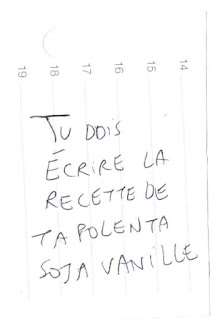 19 18 17 16 15 14
TU DOIS
ÉCRIRE LA
RECETTE DE
TA POLENTA
SOJA VANILLE